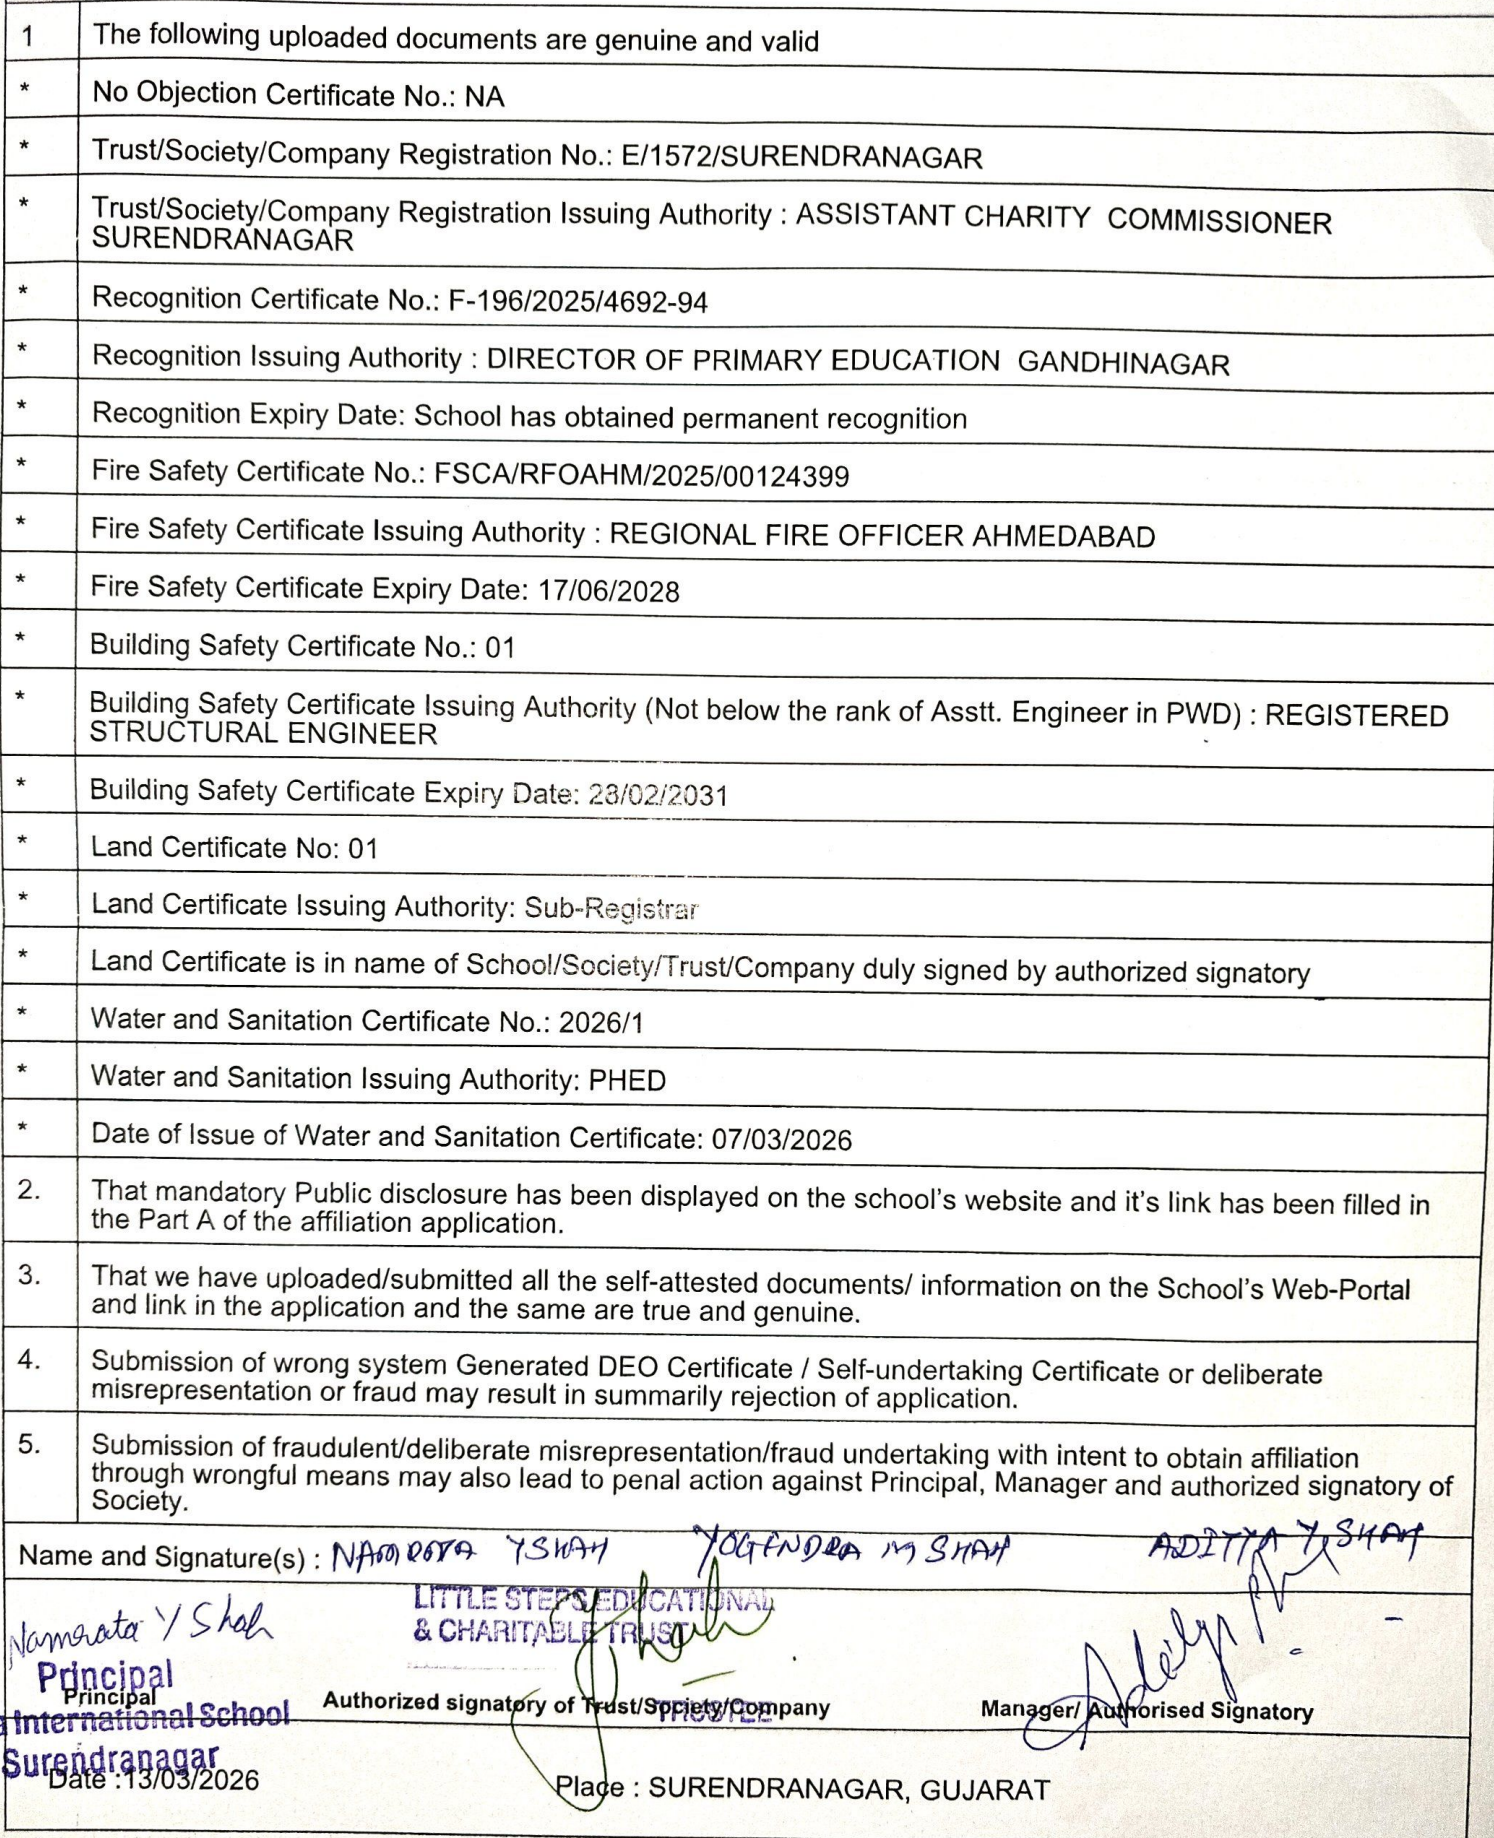 1 The following uploaded documents are genuine and valid
* No Objection Certificate No.: NA
* Trust/Society/Company Registration No.: E/1572/SURENDRANAGAR
* Trust/Society/Company Registration Issuing Authority : ASSISTANT CHARITY COMMISSIONER
SURENDRANAGAR
* Recognition Certificate No.: F-196/2025/4692-94
* Recognition Issuing Authority : DIRECTOR OF PRIMARY EDUCATION GANDHINAGAR
* Recognition Expiry Date: School has obtained permanent recognition
* Fire Safety Certificate No.: FSCA/RFOAHM/2025/00124399
* Fire Safety Certificate Issuing Authority : REGIONAL FIRE OFFICER AHMEDABAD
* Fire Safety Certificate Expiry Date: 17/06/2028
* Building Safety Certificate No.: 01
* Building Safety Certificate Issuing Authority (Not below the rank of Asstt. Engineer in PWD) : REGISTERED
STRUCTURAL ENGINEER
* Building Safety Certificate Expiry Date: 28/02/2031
* Land Certificate No: 01
* Land Certificate Issuing Authority: Sub-Registrar
* Land Certificate is in name of School/Society/Trust/Company duly signed by authorized signatory
* Water and Sanitation Certificate No.: 2026/1
* Water and Sanitation Issuing Authority: PHED
* Date of Issue of Water and Sanitation Certificate: 07/03/2026
2. That mandatory Public disclosure has been displayed on the school's website and it's link has been filled in
the Part A of the affiliation application.
3. That we have uploaded/submitted all the self-attested documents/ information on the School's Web-Portal
and link in the application and the same are true and genuine.
4. Submission of wrong system Generated DEO Certificate / Self-undertaking Certificate or deliberate
misrepresentation or fraud may result in summarily rejection of application.
5. Submission of fraudulent/deliberate misrepresentation/fraud undertaking with intent to obtain affiliation
through wrongful means may also lead to penal action against Principal, Manager and authorized signatory of
Society.
Name and Signature(s) : NAMRATA Y SHAH YOGENDRA M SHAH ADITYA Y. SHAH
LITTLE STEPS EDUCATIONAL
& CHARITABLE TRUST
Namrata Y Shah
Principal
Principal Authorized signatory of Trust/Society/Company Manager/ Authorised Signatory
TRUSTEE
International School
Surendranagar
Date :13/03/2026 Place : SURENDRANAGAR, GUJARAT